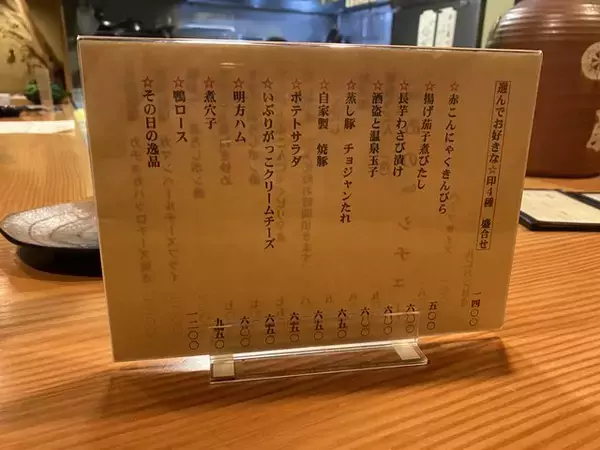 選んでお好きな☆印4種 盛合せ 一四〇〇
☆赤こんにゃくきんぴら 五〇〇
☆揚げ茄子煮びたし 六〇〇
☆長芋わさび漬け 六〇〇
☆酒盗と温泉玉子 六〇〇
☆蒸し豚 チョジャンたれ 六五〇
☆自家製 焼豚 六五〇
☆ポテトサラダ 六五〇
☆いぶりがっこクリームチーズ 六五〇
☆明方ハム 六〇〇
☆煮穴子 九五〇
☆鴨ロース 一二〇〇
☆その日の逸品